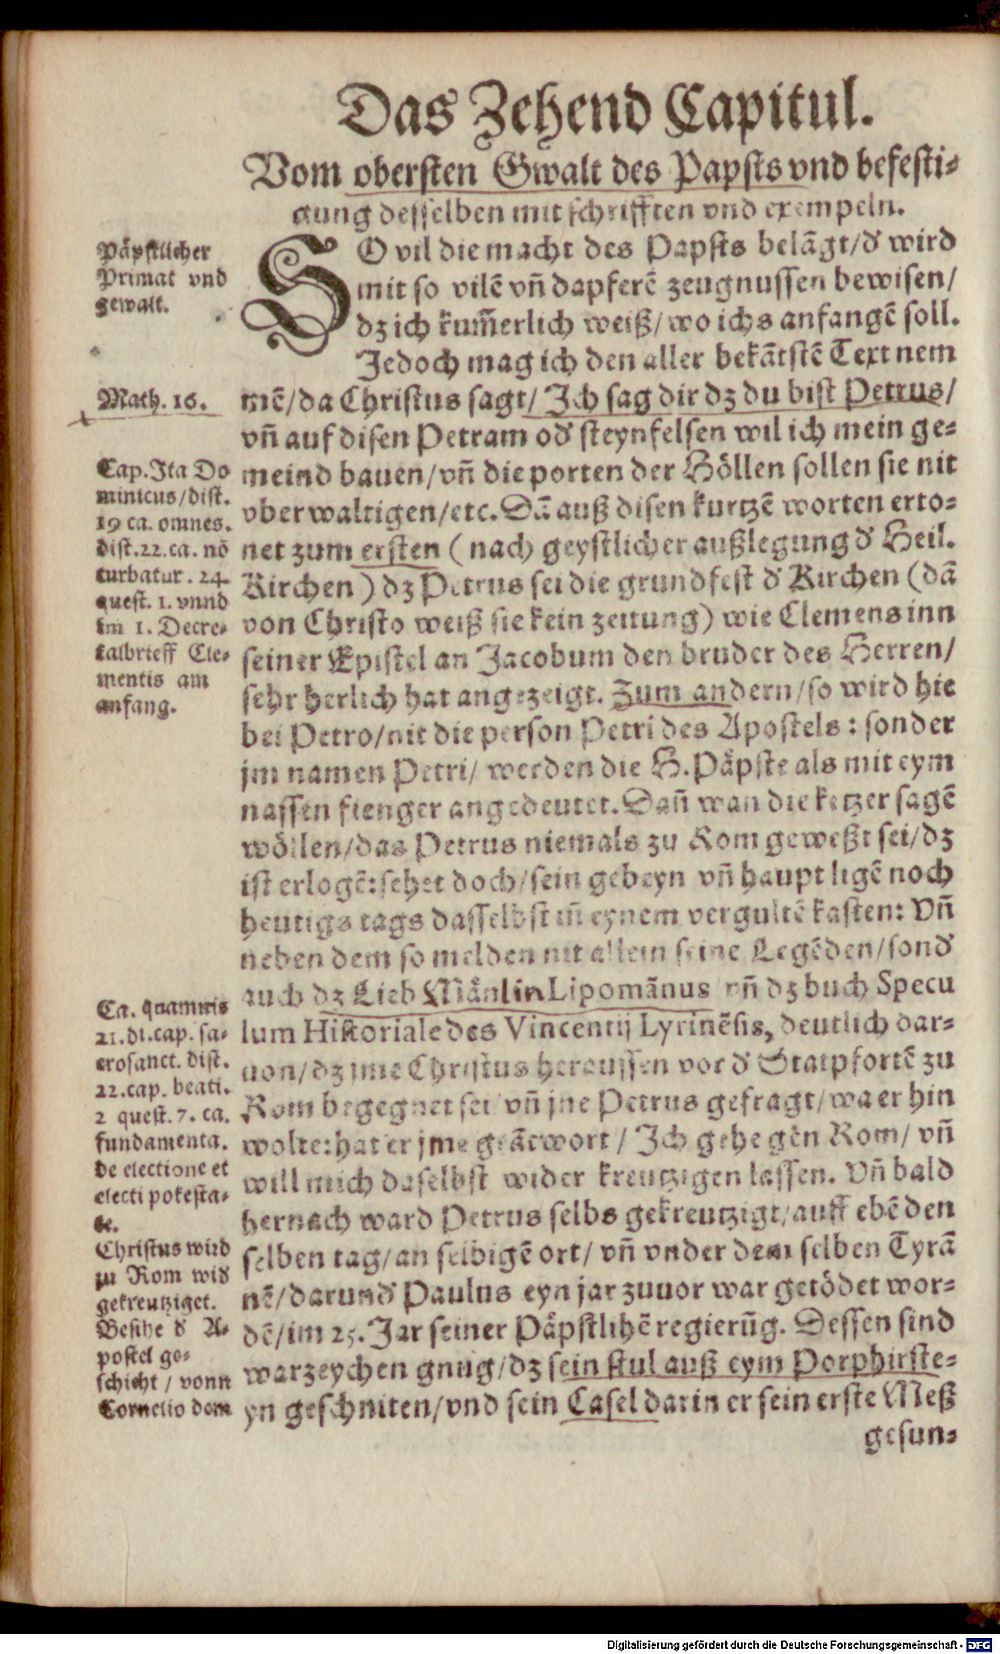 Das Zehend Capitul.
Vom obersten Gwalt des Papsts vnd befesti-
gung desselben mit schrifften vnd exempeln.
SO vil die macht des Papsts belãgt/d' wird
mit so vilẽ vñ dapferẽ zeugnussen bewisen/
dz ich kum̃erlich weiß/wo ichs anfangẽ soll.
Jedoch mag ich den aller bekãtstẽ Text nem
mẽ/da Christus sagt/ Jch sag dir dz du bist Petrus/
vñ auf disen Petram od' steynfelsen wil ich mein ge-
meind bauen/vñ die porten der Höllen sollen sie nit
vberwaltigen/etc. Dã auß disen kurtzẽ worten erto-
net zum ersten (nach geystlicher außlegung d' Heil.
Kirchen) dz Petrus sei die grundfest d' Kirchen (dã
von Christo weiß sie kein zeitung) wie Clemens inn
seiner Epistel an Jacobum den bruder des Herren/
sehr herlich hat angezeigt. Zum andern/so wird hie
bei Petro/nit die person Petri des Apostels: sonder
jm namen Petri/ werden die H. Päpste als mit eym
nassen fienger angedeutet. Dañ wan die ketzer sagẽ
wöllen/das Petrus niemals zu Rom geweßt sei/dz
ist erlogẽ: sehet doch/sein gebeyn vñ haupt ligẽ noch
heutigs tags dasselbst in̄ eynem vergultẽ kasten: Vñ
neben dem so melden nit allein seine Legẽden/sond'
auch dz Lieb Mänlin Lipomãnus vñ dz buch Specu
lum Historiale des Vincentij Lyrinẽsis, deutlich dar-
uon/dz jme Christus heraussen vor d' Statpfortẽ zu
Rom begegnet sei/vñ jne Petrus gefragt/wa er hin
wolte: hat er jme geãtwort/ Jch gehe gẽn Rom/ vñ
will mich daselbst wider kreutzigen lassen. Vñ bald
hernach ward Petrus selbs gekreutzigt/auff ebẽ den
selben tag/an selbigẽ ort/ vñ vnder dem selben Tyrã
nẽ/darund' Paulus eyn jar zuuor war getödet wor-
dẽ/im 25. Jar seiner Päpstlihẽ regierũg. Dessen sind
warzeychen gnug/dz sein stul auß eym Porphirste-
yn geschniten/vnd sein Casel darin er sein erste Meß
gesun-
Päpstlicher
Primat vnd
gewalt.
Math. 16.
Cap. Ita Do
minicus/dist.
19 ca. omnes.
dist. 22. ca. nõ
turbatur. 24.
quest. 1. vnnd
im 1. Decre-
talbrieff Cle-
mentis am
anfang.
Ca. quamuis
21. di. cap. sa-
crosanct. dist.
22. cap. beati.
2 quest. 7. ca.
fundamenta.
de electione et
electi potesta-
te.
Christus wird
zu Rom wid'
gekreutziget.
Besihe d' A-
postel ge-
schicht / vonn
Cornelio dem
Digitalisierung gefördert durch die Deutsche Forschungsgemeinschaft - DFG